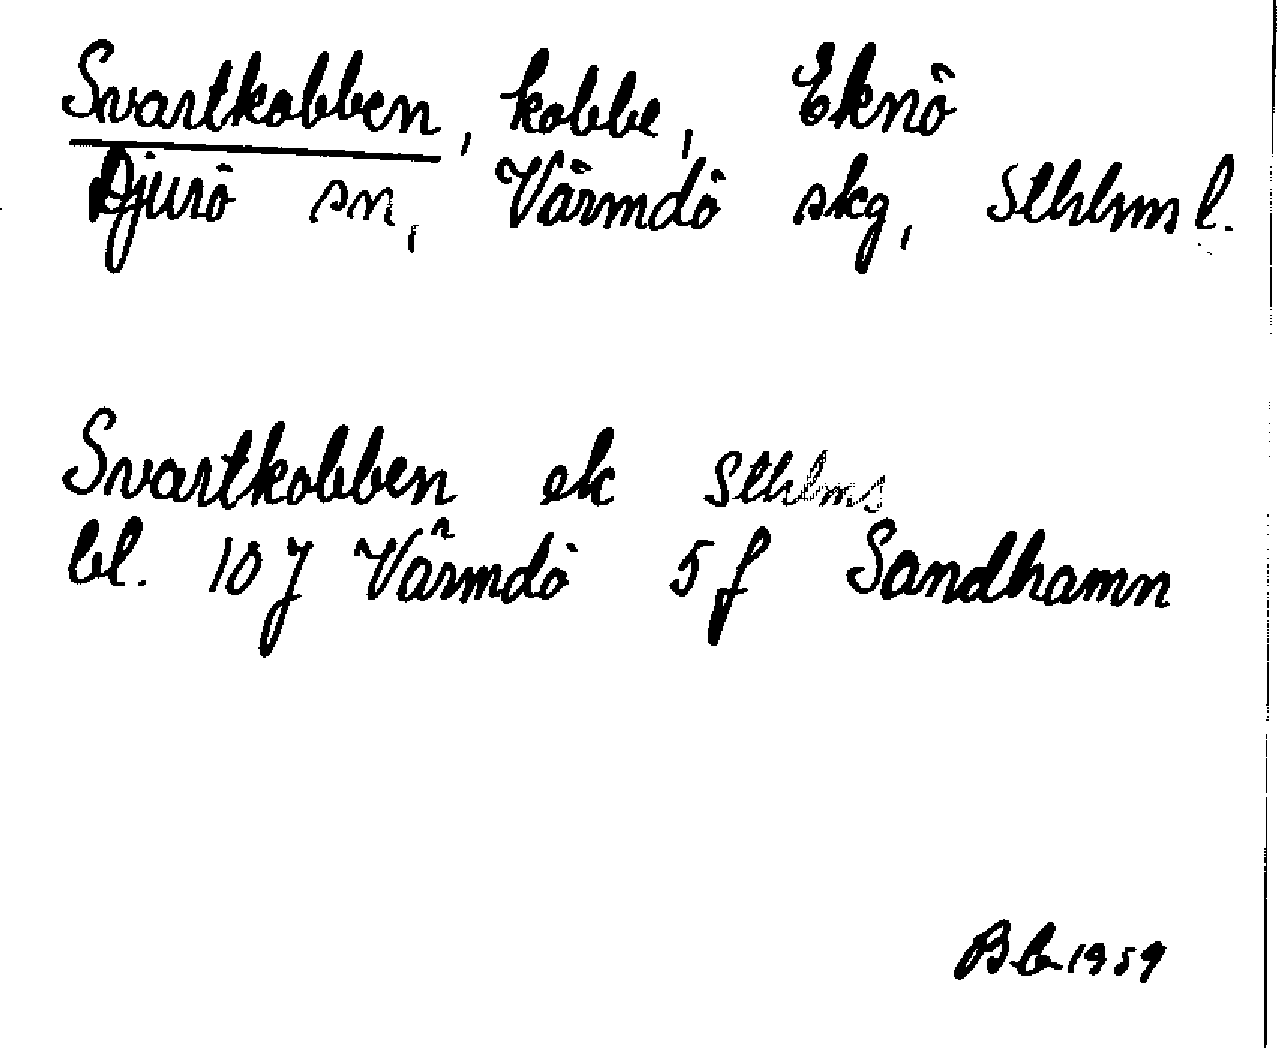 Svartkobben, kobbe, Eknö
Djurö sn, Värmdö skg, Sthlms l.
Svartkobben ek Sthlms
bl. 10 J Värmdö 5 f Sandhamn
1959